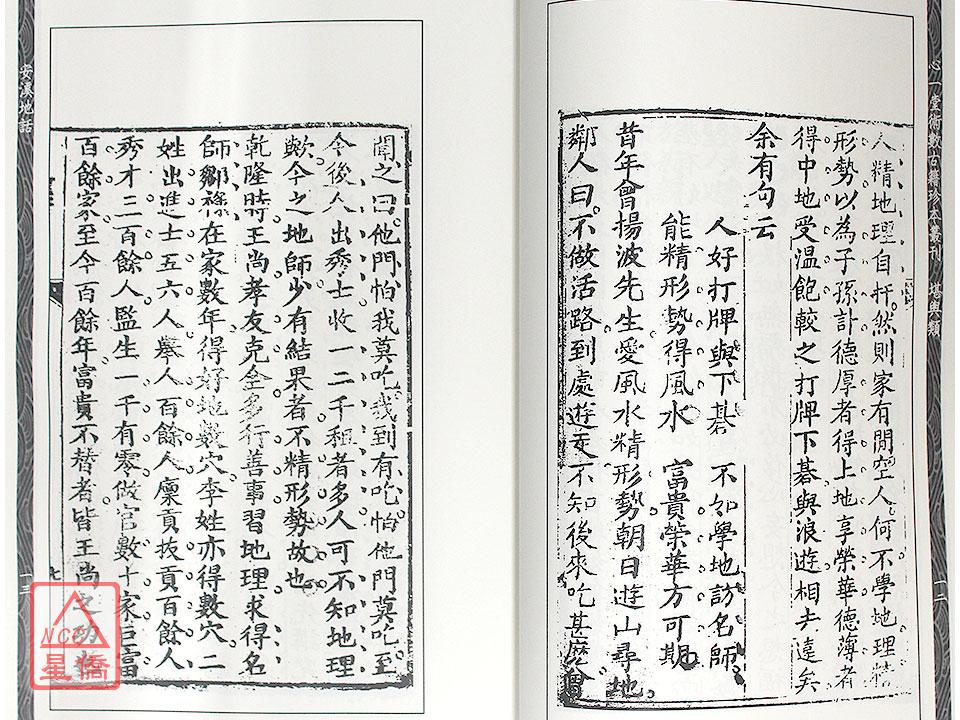 心一堂術數古籍珍本叢刊 堪輿類
人精地理自扞。然則家有閒空人。何不學地理精
形勢以為子孫計德厚者得上地享榮華德薄者
得中地受溫飽較之打牌下碁與浪遊相去遠矣
余有句云
人好打牌與下碁 不如學地訪名師
能精形勢得風水 富貴榮華方可期
昔年曾揚波先生。愛風水精形勢朝日遊山尋地。
鄰人曰。不做活路。到處遊天不知後來吃甚麼。曾
一二
聞之曰。他門怕我莫吃。我到有吃。怕他門莫吃。至
今後人出秀士收一二千租者多。人可不知地理
歟。今之地師少有結果者不精形勢故也。
乾隆時王尚孝友克全多行善事習地理求得名
師鄒祿在家數年得好地數穴。李姓亦得數穴。二
姓出進士五六人。舉人百餘人。廩貢拔貢百餘人
秀才二百餘人。監生一千有零。做官數十家。巨富
百餘家。至今百餘年富貴不替者皆王尚之
七
安溪地話
一三
NCP
星僑